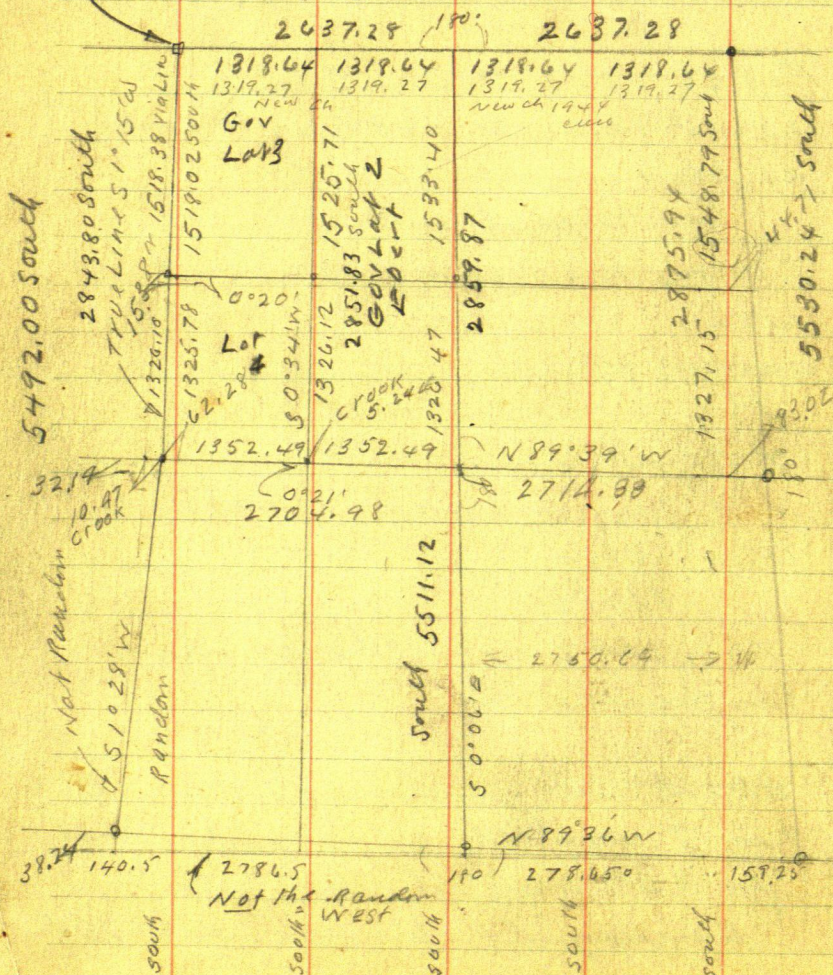 2637.28 180° 2637.28
1318.64 1318.64 1318.64 1318.64
1319.27 1319.27 1319.27 1319.27
New Ch New Ch 1944
Gov
Lot 3
5492.00 South
2843.80 South
True Line S 1° 15' W
1518.38 via Lin
1518.02 South
1525.71
2851.83 South
Gov Lot 2
1533.40
2859.87
2875.94
1548.79 South
5530.24 South
0°20'
Lot
4
1326.10
1325.78
S 0°34' W
1326.12
1326.47
1327.15
62.28
Crook
5.24
93.02
1352.49 1352.49 N 89°39' W
32.19
10.47
Crook
0°21'
2704.98
2714.88
180°
Not Random
S 1° 28' W
Random
South 5511.12
2750.69
S 0°06' E
N 89°36 W
38.24 140.5 2786.5 180 278.650 159.25
Not the Random
West
South South South South South